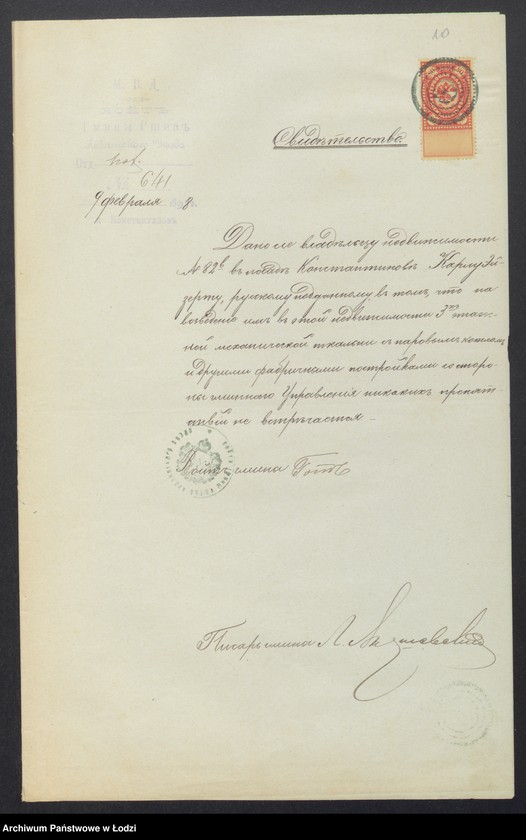 10
М. В. Д.
Гмины Рженъ
Отд.
641
9 февраля 8
Свидѣтельство.
Дано сіе владѣльцу недвижимости
№ 82в въ посадѣ Константиновѣ Карлу Эй-
зерту, русскому подданному въ томъ, что на
возведеніе имъ въ этой недвижимости 3хъ этаж-
ной механической ткальни съ паровымъ котломъ
и другими фабричными постройками со сторо-
ны гминнаго Управленія никакихъ препят-
ствій не встрѣчается.
Войтъ гмины
Писарь гмины Л.
Archiwum Państwowe w Łodzi